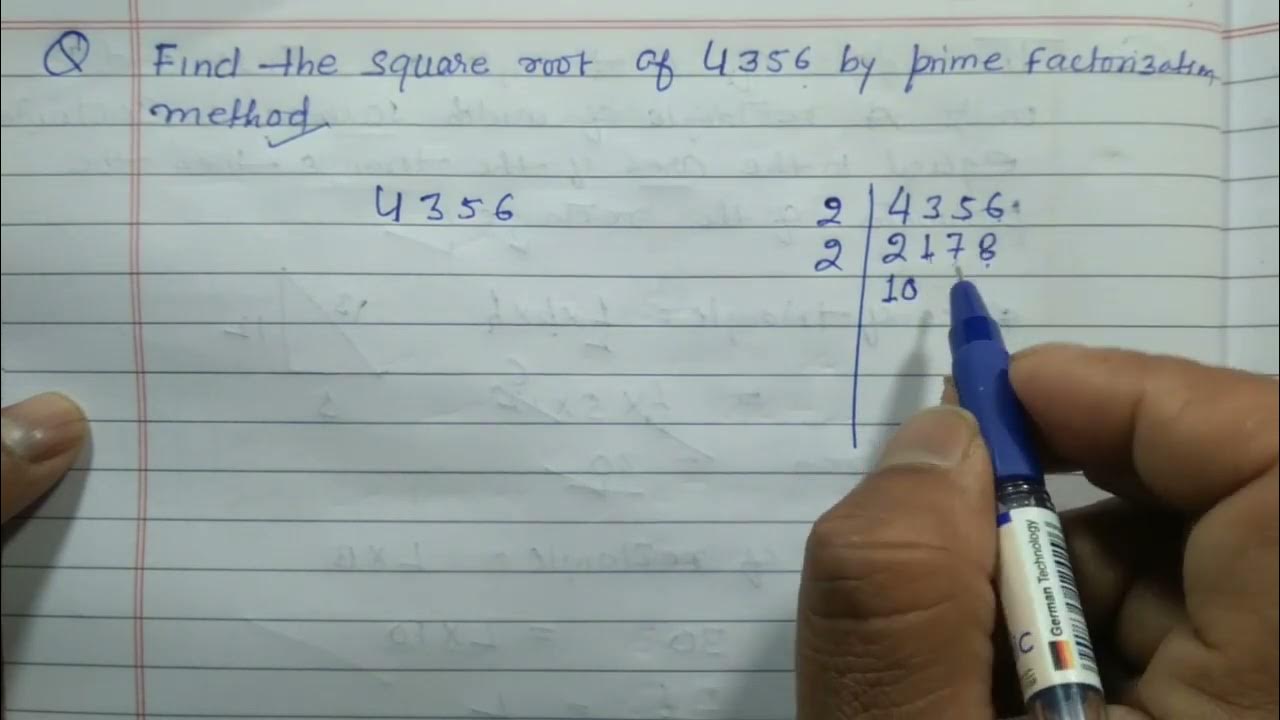 Q Find the square root of 4356 by prime factorization
method
4356
2 4356
2 2178
10
German Technology